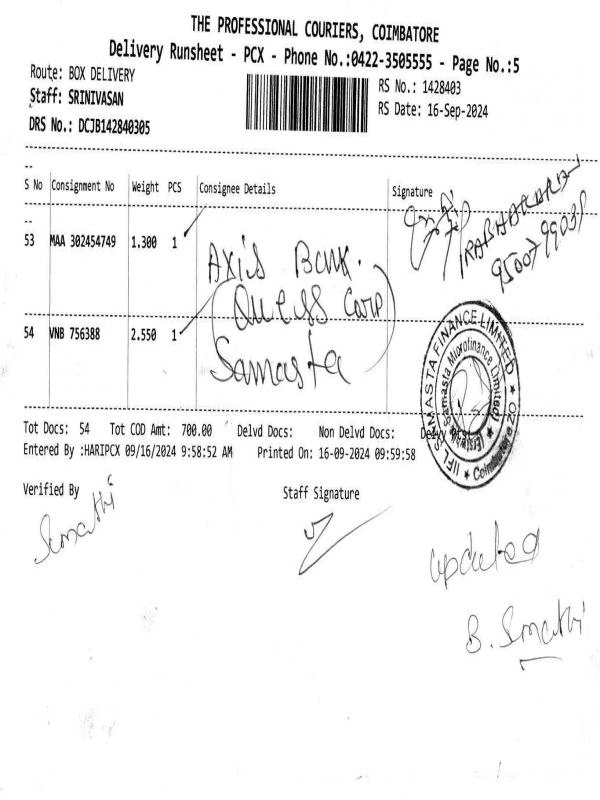 THE PROFESSIONAL COURIERS, COIMBATORE
Delivery Runsheet - PCX - Phone No.:0422-3505555 - Page No.:5
Route: BOX DELIVERY
RS No.: 1428403
Staff: SRINIVASAN
RS Date: 16-Sep-2024
DRS No.: DCJB142840305
S No Consignment No Weight PCS Consignee Details Signature
53 MAA 302454749 1.300 1
Axis Bank.
(Quess Corp)
PRABHAKARAN
54 VNB 756388 2.550 1
Samasta
IIFL SAMASTA FINANCE LIMITED
Samasta Microfinance Limited)
Coimbatore ZO
Tot Docs: 54 Tot COD Amt: 700.00 Delvd Docs: Non Delvd Docs:
Entered By :HARIPCX 09/16/2024 9:58:52 AM Printed On: 16-09-2024 09:59:58
Verified By Staff Signature
Sumathi
updated
B. Sumathi